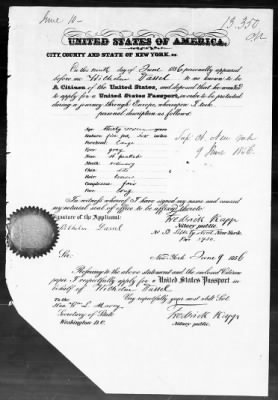 June 10
13,350
UNITED STATES OF AMERICA.
CITY, COUNTY AND STATE OF NEW YORK, ss:
On the ninth day of June 1856 personally appeared
before me Wilhelm Dassel to me known to be
A Citizen of the United States, and deposed that he wanted
to apply for a United States Passport, in order to be protected
during a journey through Europe, whereupon I took
personal description as follows:
Age thirty seven years
Stature five feet, six inches
Forehead large
Eyes gray
Nose
Mouth ordinary
Chin
Hair brown
Complexion fair
Face long
9 June 1856.
In witness whereof I have signed my name and caused
my notarial seal of office to be affixed thereto
Signature of the Applicant:
Wilhelm Dassel
Frederick Kapp
Notary public.
New York
Sir:
New York June 9 1856
Referring to the above statement and the enclosed Citizen
paper I respectfully apply for a United States Passport in
behalf of Wilhelm Dassel
Very respectfully yours
To the
Hon. Wm. L. Marcy
Secretary of State
Washington D.C.
Frederick Kapp
Notary public.